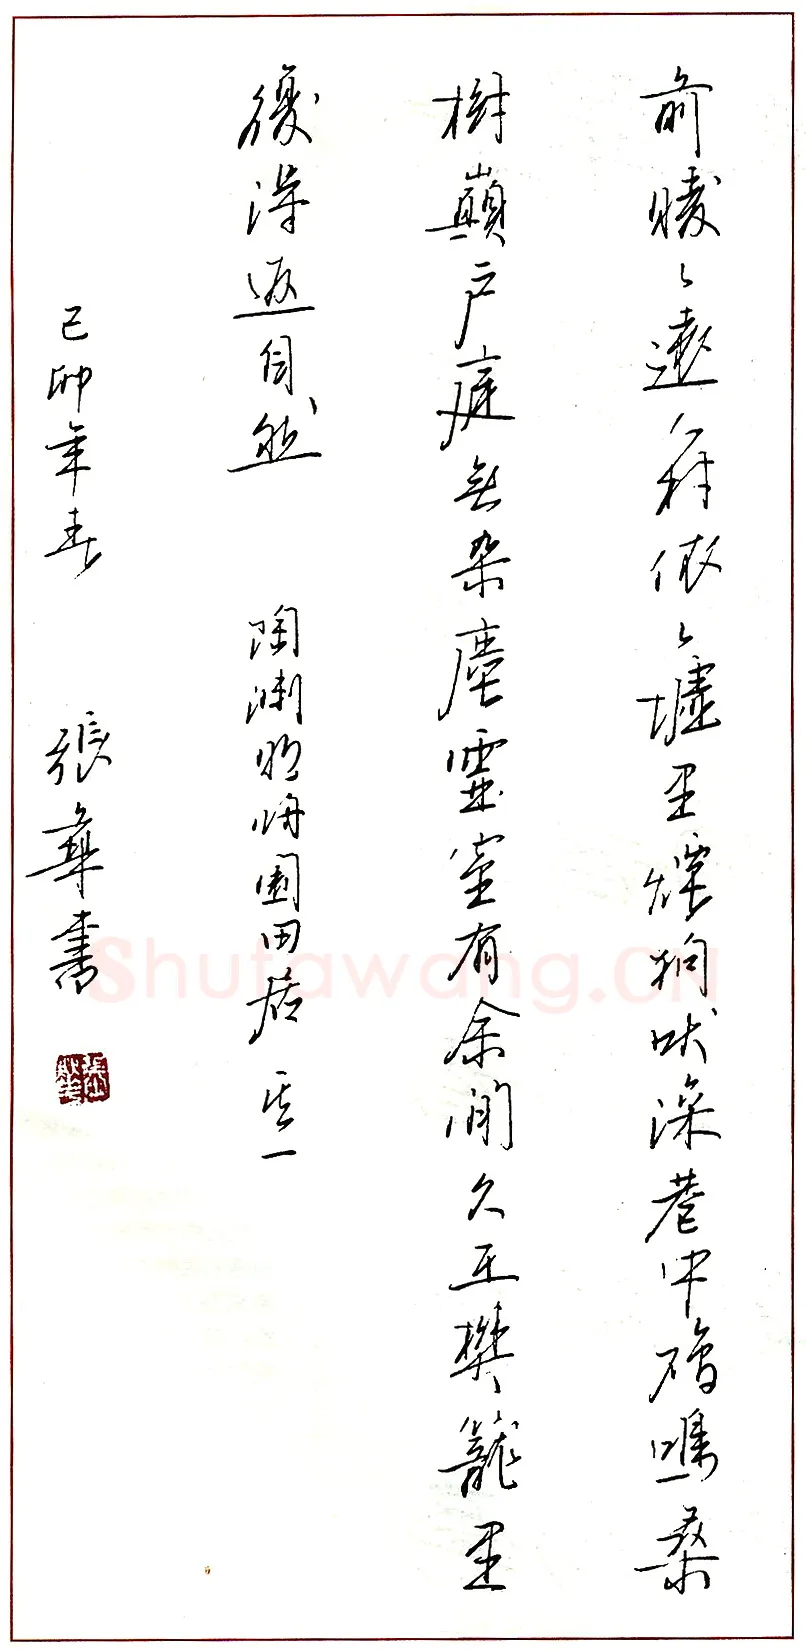 前曖〻遠村依〻墟里煙狗吠深巷中雞鳴桑
樹巔戶庭無杂塵虛室有余閒久在樊籠里
復得返自然 陶淵明歸園田居 其一
己卯年春 張華書
張華
Shufawang.CN